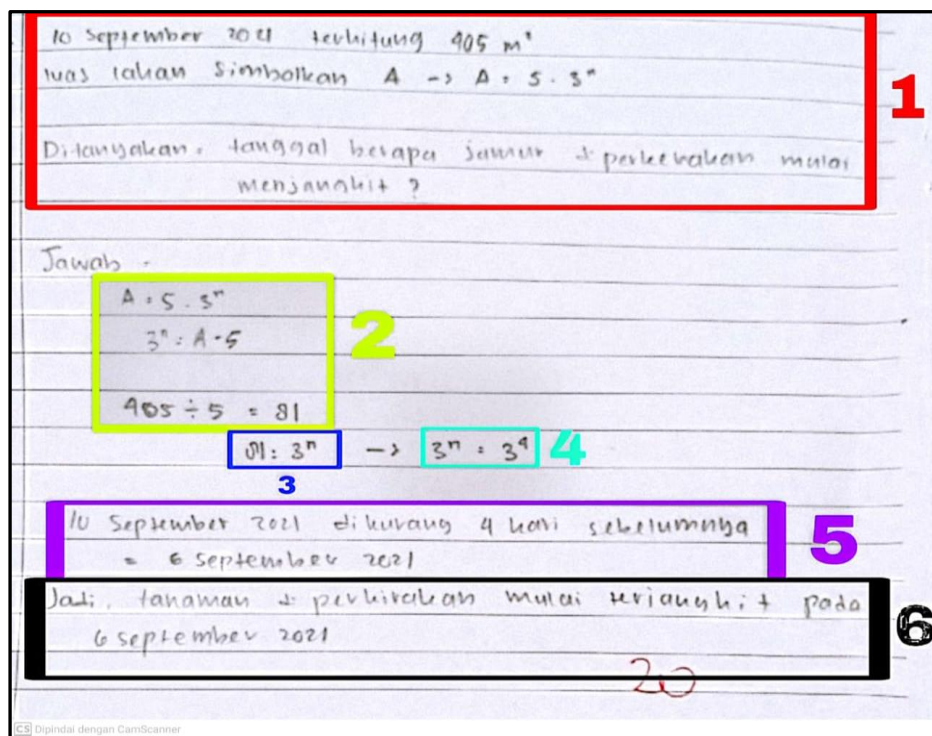 10 September 2021 terhitung 405 m²
luas lahan Simbolkan A -> A = 5 . 3ⁿ
1
Ditanyakan. tanggal berapa jamur diperkirakan mulai
menjangkit ?
Jawab .
A = 5 . 3ⁿ
3ⁿ = A ÷ 5
2
405 ÷ 5 = 81
81 = 3ⁿ -> 3ⁿ = 3⁴ 4
3
10 September 2021 dikurang 4 hari sebelumnya
= 6 September 2021
5
Jadi, tanaman diperkirakan mulai terjangkit pada
6 september 2021
6
20
CS Dipindai dengan CamScanner